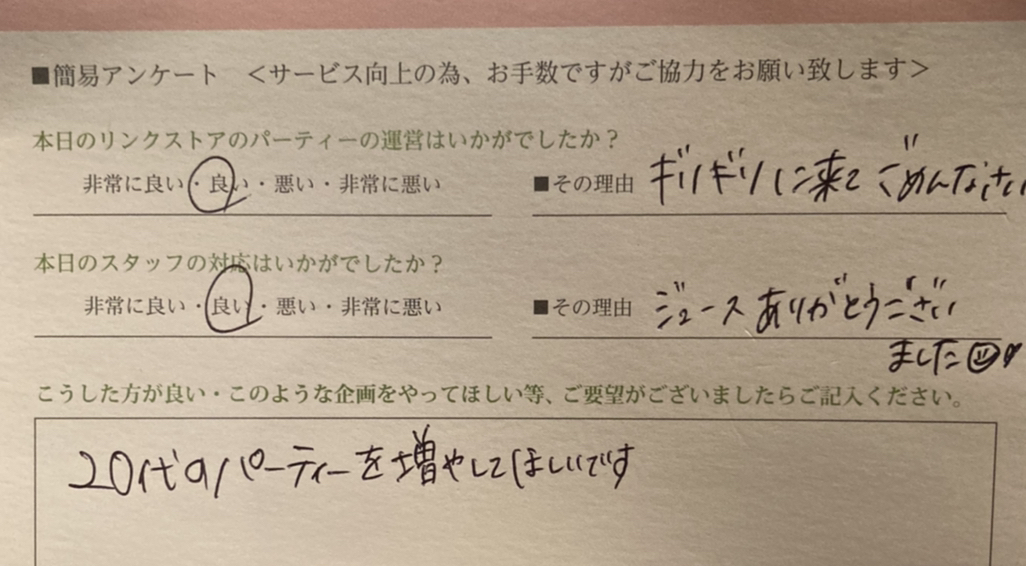 ■簡易アンケート ＜サービス向上の為、お手数ですがご協力をお願い致します＞
本日のリンクストアのパーティーの運営はいかがでしたか？
非常に良い・良い・悪い・非常に悪い ■その理由 ギリギリに来てごめんなさい
本日のスタッフの対応はいかがでしたか？
非常に良い・良い・悪い・非常に悪い ■その理由 ジュースありがとうござい
ました
こうした方が良い・このような企画をやってほしい等、ご要望がございましたらご記入ください。
20代のパーティーを増やしてほしいです